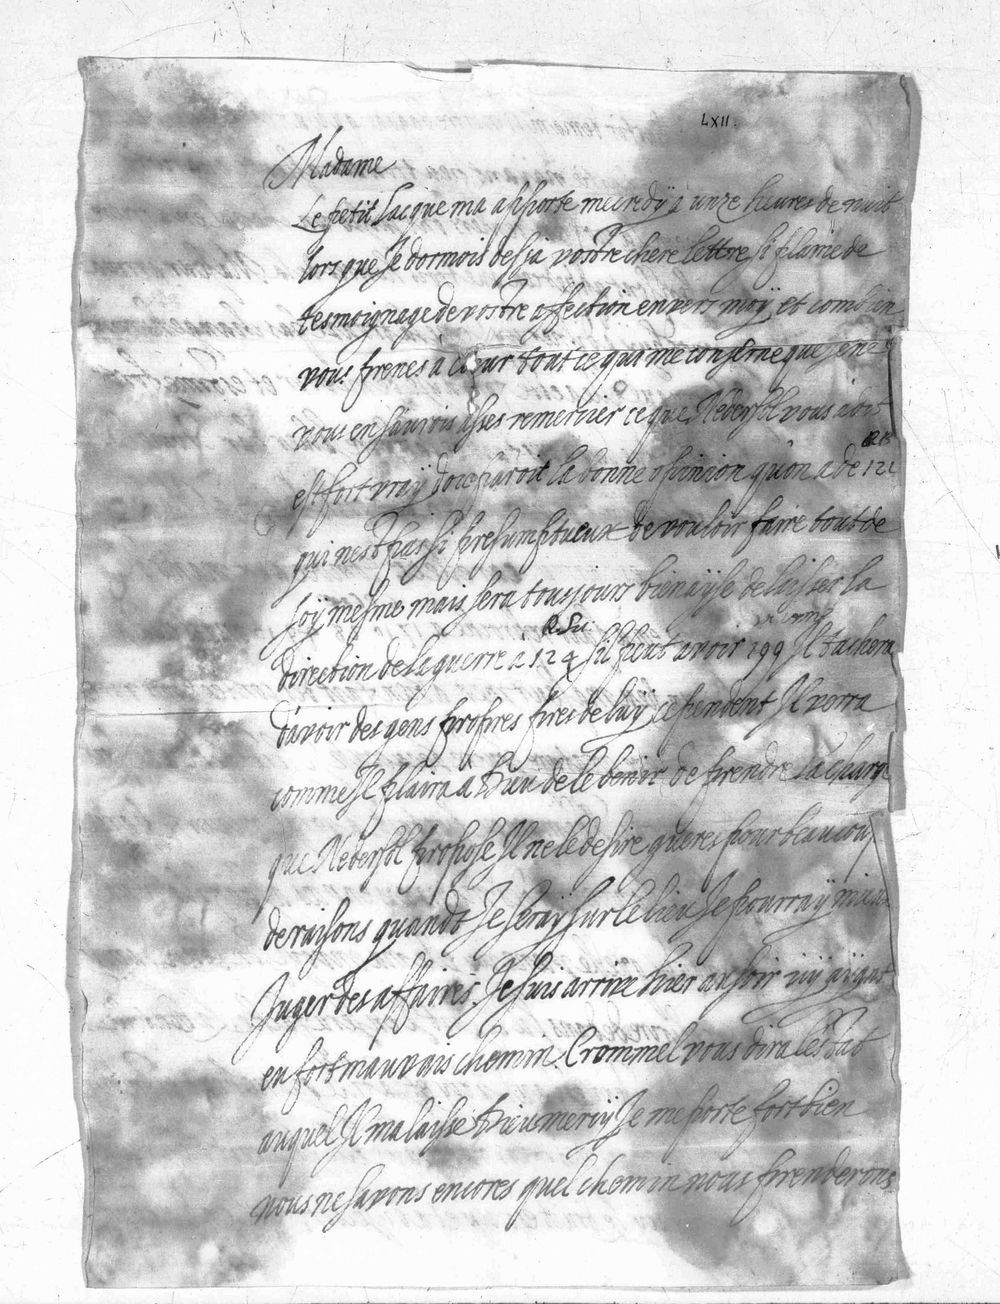 LXII.
Madame
Le petit Jacque ma apporte mecredÿ a unze heures de nuit
lors que Je dormois dessja vostre chere lettre si plaine de
tesmoignage de vostre affection envers moÿ et combien
vous prenes à cœur tout ce qui me consерne que Je ne
vous en saurois asses remercier ce que Nebersol vous a dit
est fort vraÿ paroit la bonne opinion qu'on a de 121
qui nest pas si presumptueux de vouloir faire tout de
soÿ mesme mais sera tousjours bien ayse de laisser la
direction de la guerre a 124 sil peut avoir 299 Il tachera
d'avoir des gens propres pres de luÿ cependent Il verra
comme Il plaira a Dieu de le benir de prendre la charge
que Nebersol propose Il ne le desire gueres pour beaucoup
de raisons quandt Je seraÿ sur le lieu Je pourraÿ mieux
Juger des affaires, Je suis arrive hier au soir
en fort mauvais chemin. Crommel vous dira lestat
auquel Il ma laisse Dieu mercÿ Je me porte fort bien
nous ne savons encores quel chemin nous prenderons